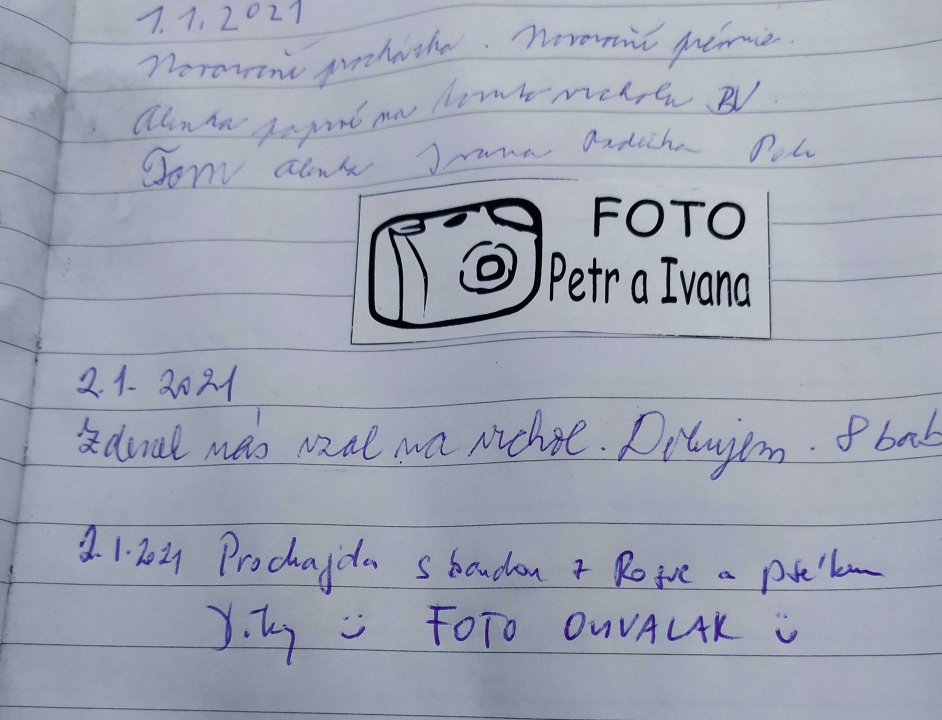 1.1.2021
Novoroční procházka. Novoroční prémie.
Alenka poprvé na tomto vrcholu BV
Tom Alenka Ivana Radečka Petr
FOTO
Petr a Ivana
2.1. 2021
Zdeněk nás vzal na vrchol. Děkujem. 8 bab
2.1.2021 Prochajda s bandou z a psékem
Díky ü FOTO OUVALAK ü